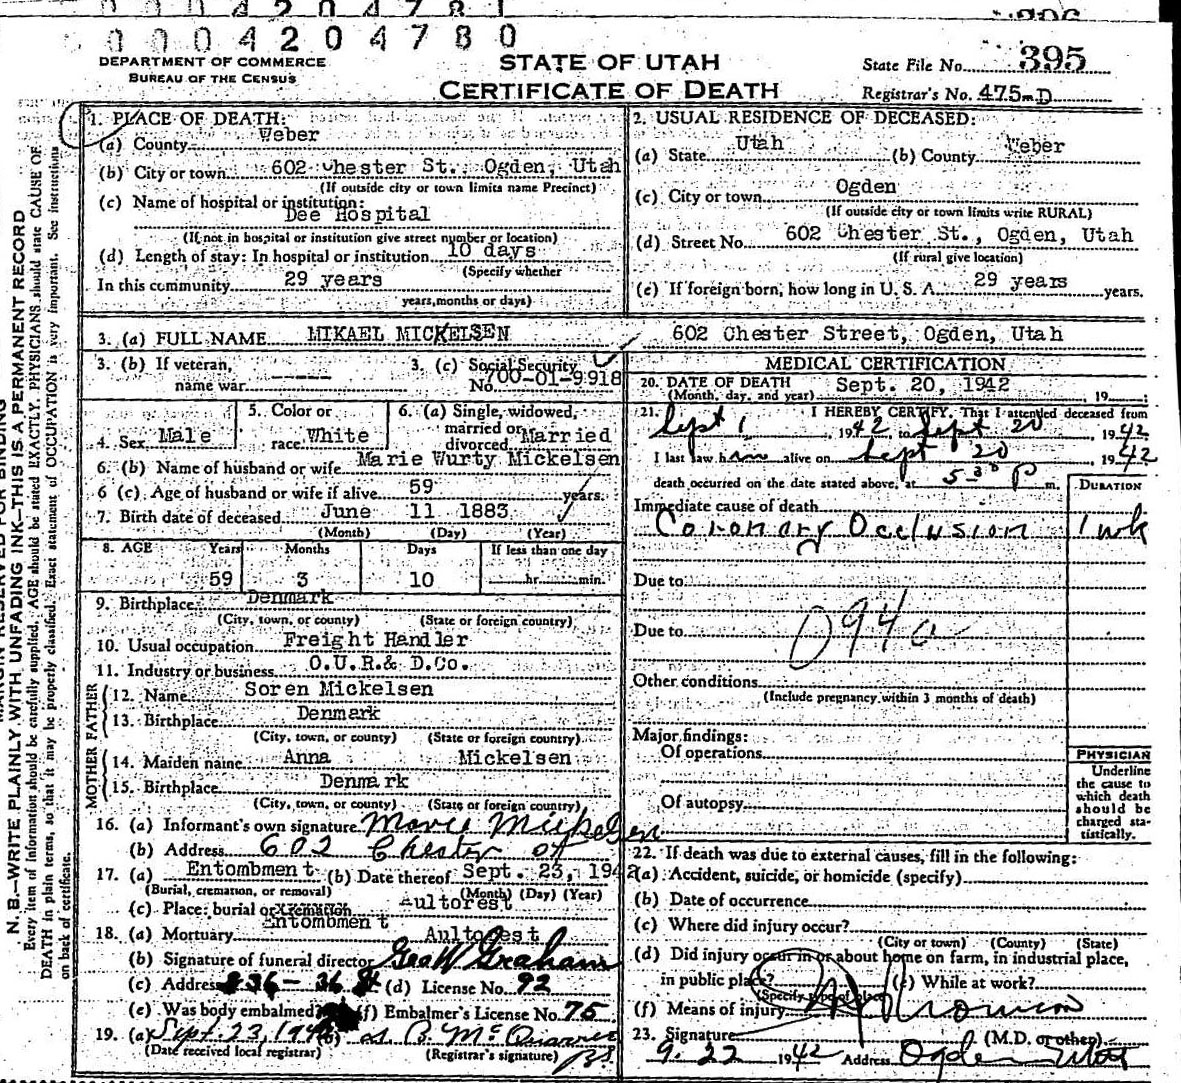 0 0 0 4 2 0 4 7 8 1
0 0 0 4 2 0 4 7 8 0
DEPARTMENT OF COMMERCE
BUREAU OF THE CENSUS
STATE OF UTAH
CERTIFICATE OF DEATH
State File No. 395
Registrar's No. 475-D
N. B.—WRITE PLAINLY WITH UNFADING INK—THIS IS A PERMANENT RECORD
Every item of Information should be carefully supplied. AGE should be stated EXACTLY. PHYSICIANS should state CAUSE OF
DEATH in plain terms, so that it may be properly classified. Exact statement of OCCUPATION is very important. See instructions
on back of certificate.
1. PLACE OF DEATH:
(a) County Weber
(b) City or town 602 Chester St., Ogden, Utah
(If outside city or town limits name Precinct)
(c) Name of hospital or institution:
Dee Hospital
(If not in hospital or institution give street number or location)
(d) Length of stay: In hospital or institution 10 days
(Specify whether
In this community 29 years
years, months or days)
2. USUAL RESIDENCE OF DECEASED:
(a) State Utah (b) County Weber
(c) City or town Ogden
(If outside city or town limits write RURAL)
(d) Street No. 602 Chester St., Ogden, Utah
(If rural give location)
(e) If foreign born, how long in U. S. A. 29 years years.
3. (a) FULL NAME MIKAEL MICKELSEN 602 Chester Street, Ogden, Utah
3. (b) If veteran, name war ----- 3. (c) Social Security No. 700-01-9918
4. Sex Male 5. Color or race White 6. (a) Single, widowed, married or divorced Married
6. (b) Name of husband or wife Marie Wurty Mickelsen
6 (c) Age of husband or wife if alive 59 years.
7. Birth date of deceased June 11 1883
(Month) (Day) (Year)
8. AGE Years Months Days If less than one day
59 3 10 hr. min.
9. Birthplace Denmark
(City, town, or county) (State or foreign country)
10. Usual occupation Freight Handler
11. Industry or business O.U.R.& D.Co.
FATHER
12. Name Soren Mickelsen
13. Birthplace Denmark
(City, town, or county) (State or foreign country)
MOTHER
14. Maiden name Anna Mickelsen
15. Birthplace Denmark
(City, town, or county) (State or foreign country)
16. (a) Informant's own signature Marie Mickelsen
(b) Address 602 Chester St
17. (a) Entombment (b) Date thereof Sept. 23, 1942
(Burial, cremation, or removal) (Month) (Day) (Year)
(c) Place: burial or cremation Aultorest
Entombment
18. (a) Mortuary Aultorest
(b) Signature of funeral director Geo W Graham
(c) Address 836-36 St (d) License No. 92
(e) Was body embalmed? (f) Embalmer's License No. 75
19. (a) Sept. 23, 1942
(Date received local registrar) (Registrar's signature)
MEDICAL CERTIFICATION
20. DATE OF DEATH Sept. 20, 1942
(Month, day, and year) 19
21. I HEREBY CERTIFY, That I attended deceased from
Sept 1, 1942, to Sept 20, 1942
I last saw him alive on Sept 20 1942
death occurred on the date stated above, at 5:30 P m.
DURATION
Immediate cause of death
Coronary Occlusion 1 wk
Due to
094a
Due to
Other conditions
(Include pregnancy within 3 months of death)
Major findings:
Of operations
Of autopsy
PHYSICIAN
Underline
the cause to
which death
should be
charged sta-
tistically.
22. If death was due to external causes, fill in the following:
(a) Accident, suicide, or homicide (specify)
(b) Date of occurrence
(c) Where did injury occur?
(City or town) (County) (State)
(d) Did injury occur in or about home on farm, in industrial place,
in public place? (e) While at work?
(Specify type of place)
(f) Means of injury
23. Signature (M.D. or other)
9-22 1942 Address Ogden Utah